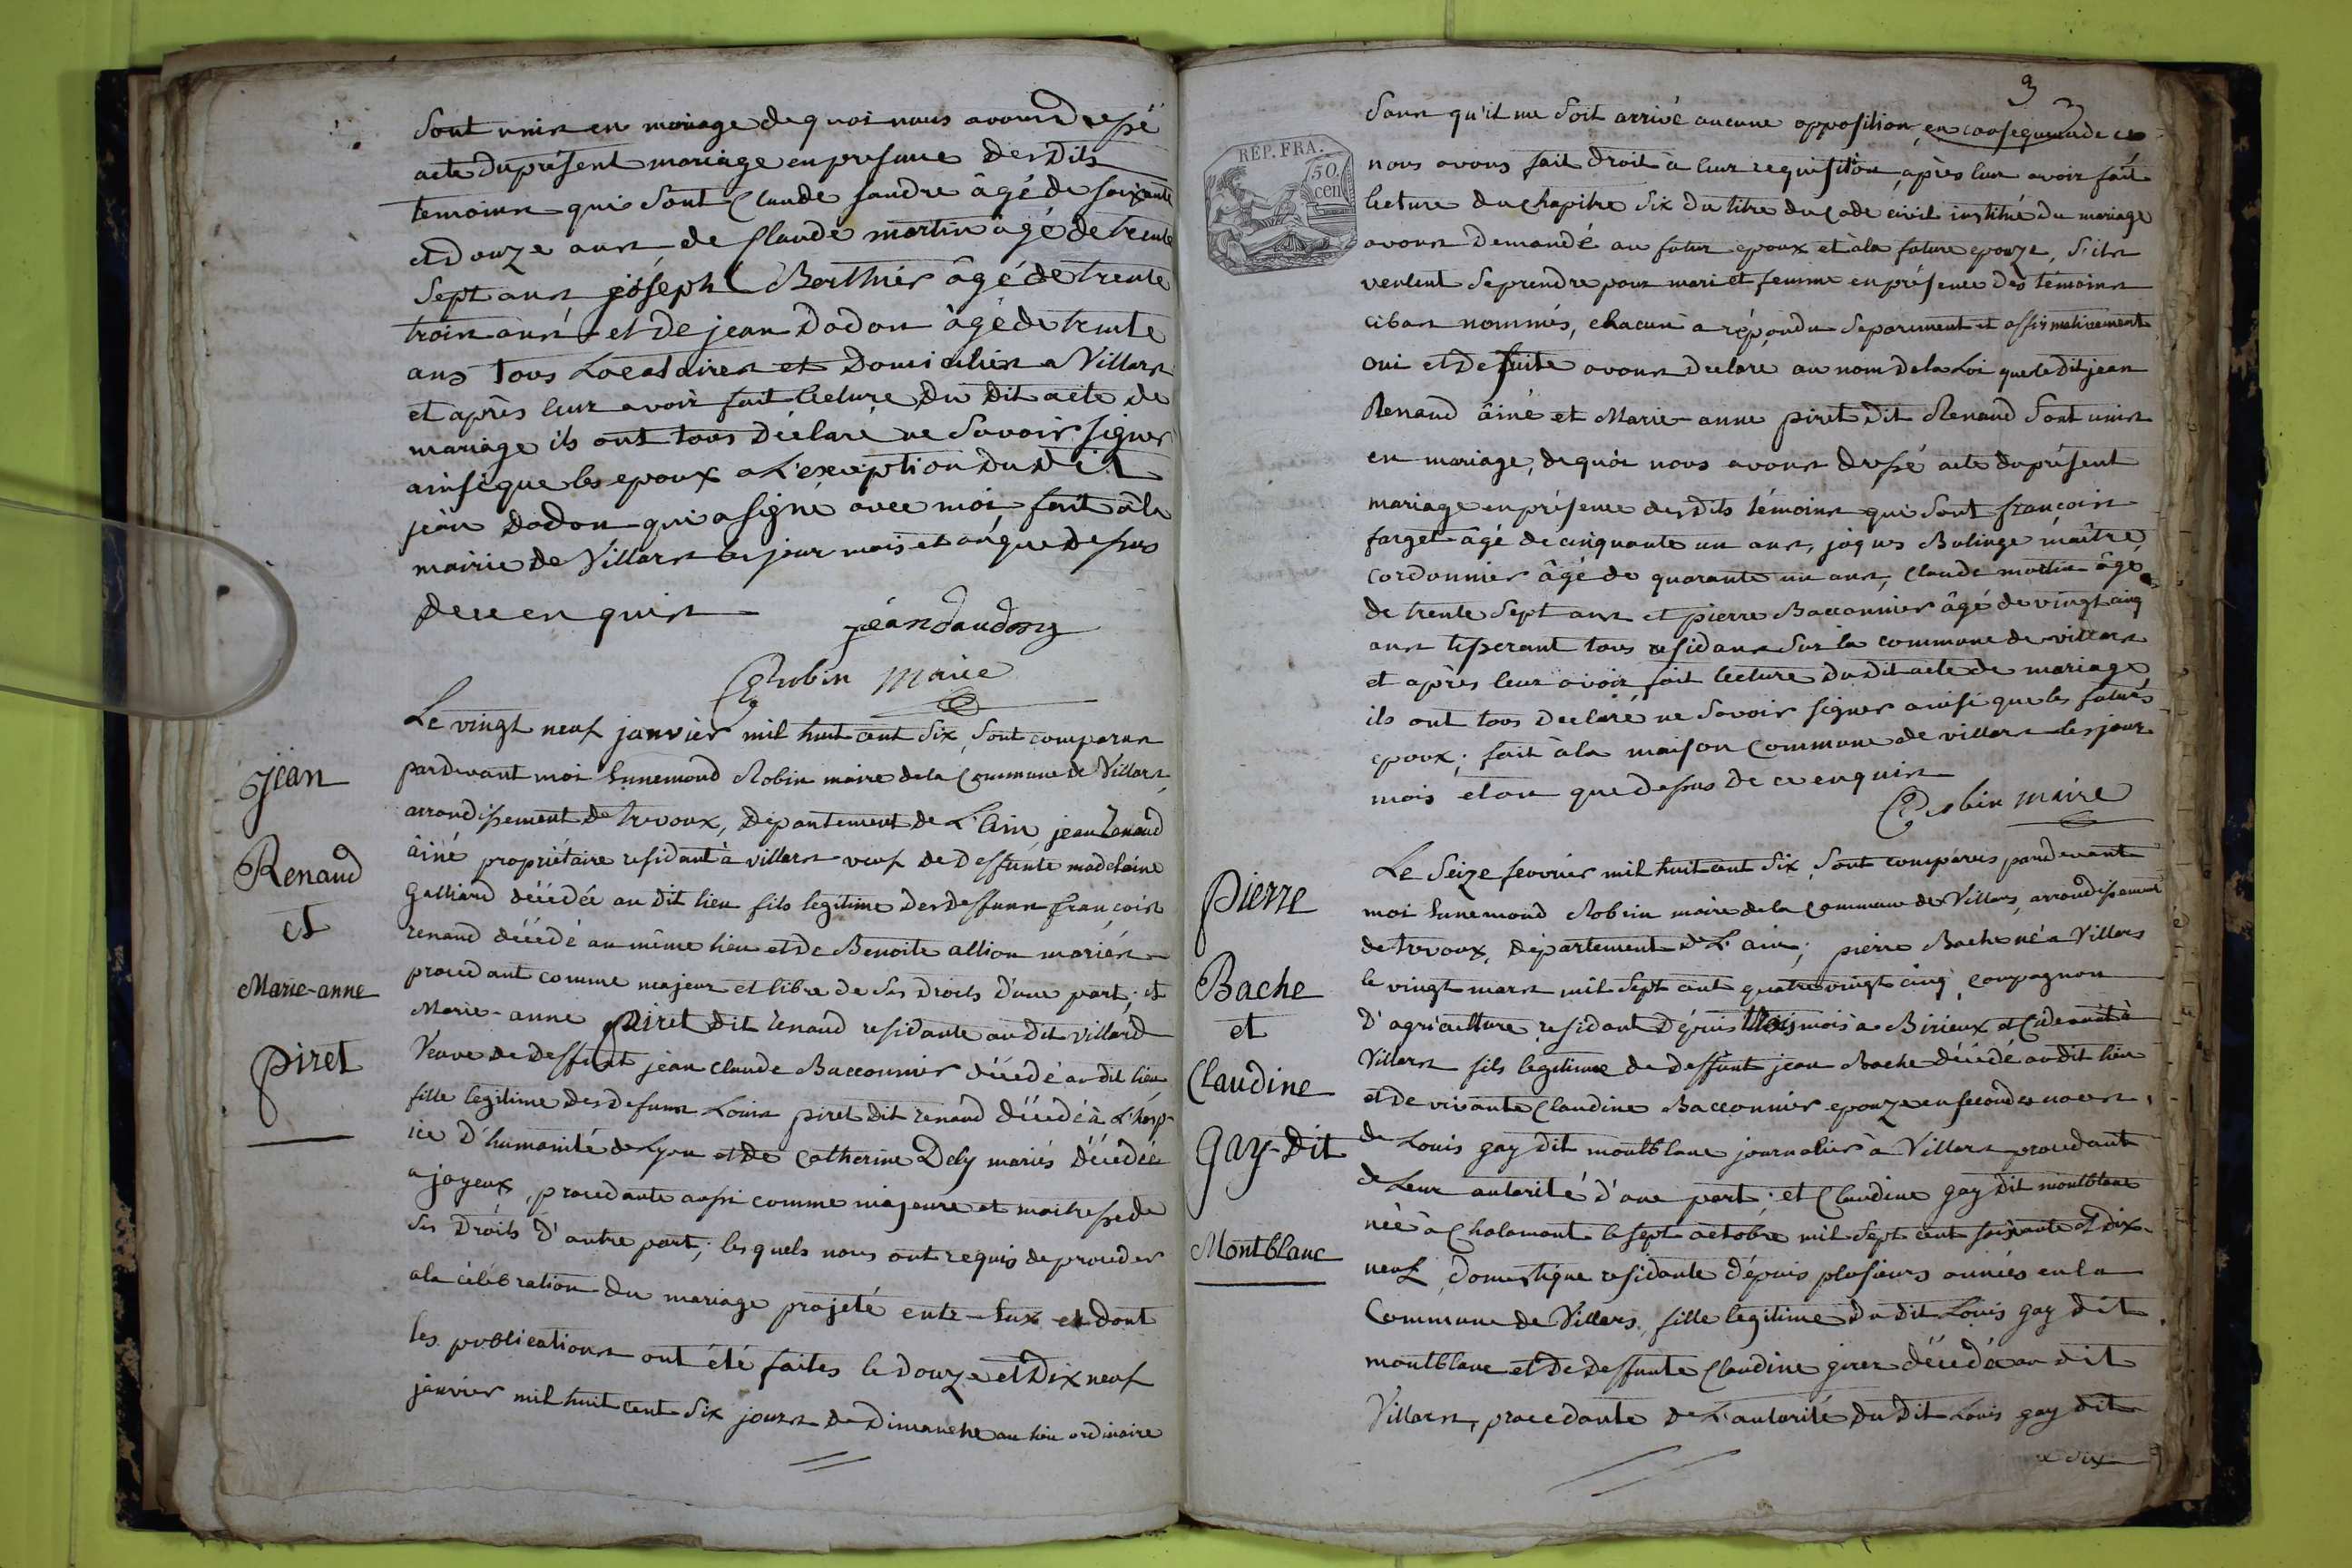 Sont unis en mariage de quoi nous avons dressé
acte du présent mariage en presence des Dits
temoins qui sont Claude fandre âgé de soixante
et douze ans de Claude martin âgé de trente
Sept ans joseph Berthier âgé de trente
trois ans et de jean Dodon âgé de trente
ans tous Locataires et Domiciliés a Villars
et après leur avoir fait lecture du dit acte de
mariage ils ont tous déclaré ne savoir signer
ainsi que les epoux a L'exception du dit
jean Dodon qui a signé avec moi fait à la
mairie de Villars les jour mois et an que dessus
de ce enquis
jéandaudon
E Robin maire
Jean
Renaud
et
Marie-anne
Piret
Le vingt neuf janvier mil huit cent six, sont comparus
pardevant moi Ennemond Robin maire de la Commune de Villars,
arrondissement de trevoux, département de L'Ain jean Renaud
âiné propriétaire residant à villars veuf de deffunte madelaine
Galliard décédée au dit lieu fils legitime des deffuns françois
renaud décédé au même lieu et de Benoite allion mariés
procedant comme majeur et libre de ses droits d'une part; et
Marie-anne Piret dit renaud residante au dit villard
Veuve de deffunt jean claude Bacconnier décédé au dit lieu
fille legitime des defuns Louis piret dit renaud décédé à L'hosp-
ice d'humanité de Lyon et de Catherine Dely mariés décédée
a joyeux, procedante aussi comme majeure et maitresse de
ses Droits d'autre part; les quels nous ont requis de proceder
a la célébration du mariage projeté entr-Eux et dont
les publications ont été faites le douze et dix neuf
janvier mil huit cent six jours de Dimanche au lieu ordinaire
3
REP. FRA.
50
cen
Sans qu'il me soit arrivé aucune opposition, en consequence de ce
nous avons fait droit à leur requisition, après leur avoir fait
lecture du Chapitre six du titre du Code civil institué du mariage
avons demandé au futur epoux et à la future epouze, s'ils
veulent se prendre pour mari et femme en présence des témoins
cibas nommés, chacun a répondu séparement et affirmativement
oui et de suite avons declare au nom de la Loi que le dit jean
Renaud âiné et Marie-anne piret dit Renaud sont unis
en mariage, de quoi nous avons dressé acte du présent
mariage en présence des dits témoins qui sont françois
farget âgé de cinquante un ans, jaques Bulinge maître
cordonnier âgé de quarante un ans, claude martin âgé
de trente sept ans et pierre Bacconnier âgé de vingt cinq
ans tisserant tous residans sur la commune de villars
et après leur avoir fait lecture du dit acte de mariage
ils ont tous declaré ne savoir signer ainsi que les futurs
epoux; fait à la maison Commune de villars les jour
mois et an que dessus de ce enquis
E Robin maire
Pierre
Bache
et
Claudine
Gay-dit
Montblanc
Le Seize fevrier mil huit cent six, sont comparus pardevant
moi Ennemond Robin maire de la Commune de Villars, arrondissement
de trevoux, département de L'ain; pierre Bache né a Villars
le vingt mars mil sept cent quatre vingt cinq, compagnon
D'agriculture, residant dépuis trois mois à Birieux et cidevant à
Villars fils legitime de deffunt jean Bache décédé au dit lieu
et de vivante Claudine Bacconnier epouze en secondes noces,
de Louis gay dit montblanc journalier à Villars procedant
de Leur autorité d'une part; et Claudine gay dit montblanc
née à Chalamont le sept octobre mil sept cent soixante et dix
neuf, Domestique residante dépuis plusieurs années en la
Commune de Villars, fille legitime du dit Louis gay dit
montblanc et de deffunte Claudine girer décédée au dit
Villars, procedante de L'autorité du dit Louis gay dit